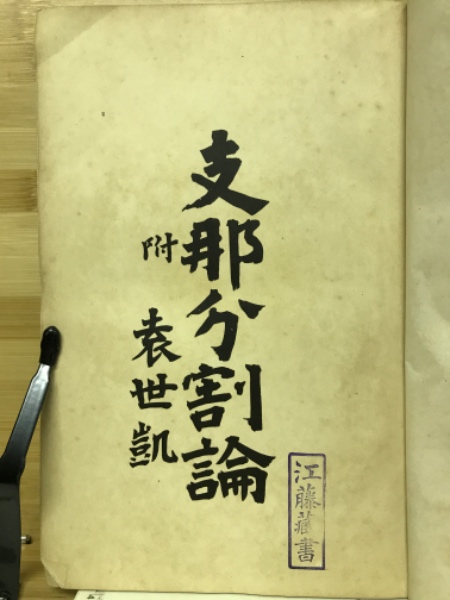 支那分割論
附 袁世凱
江藤藏書